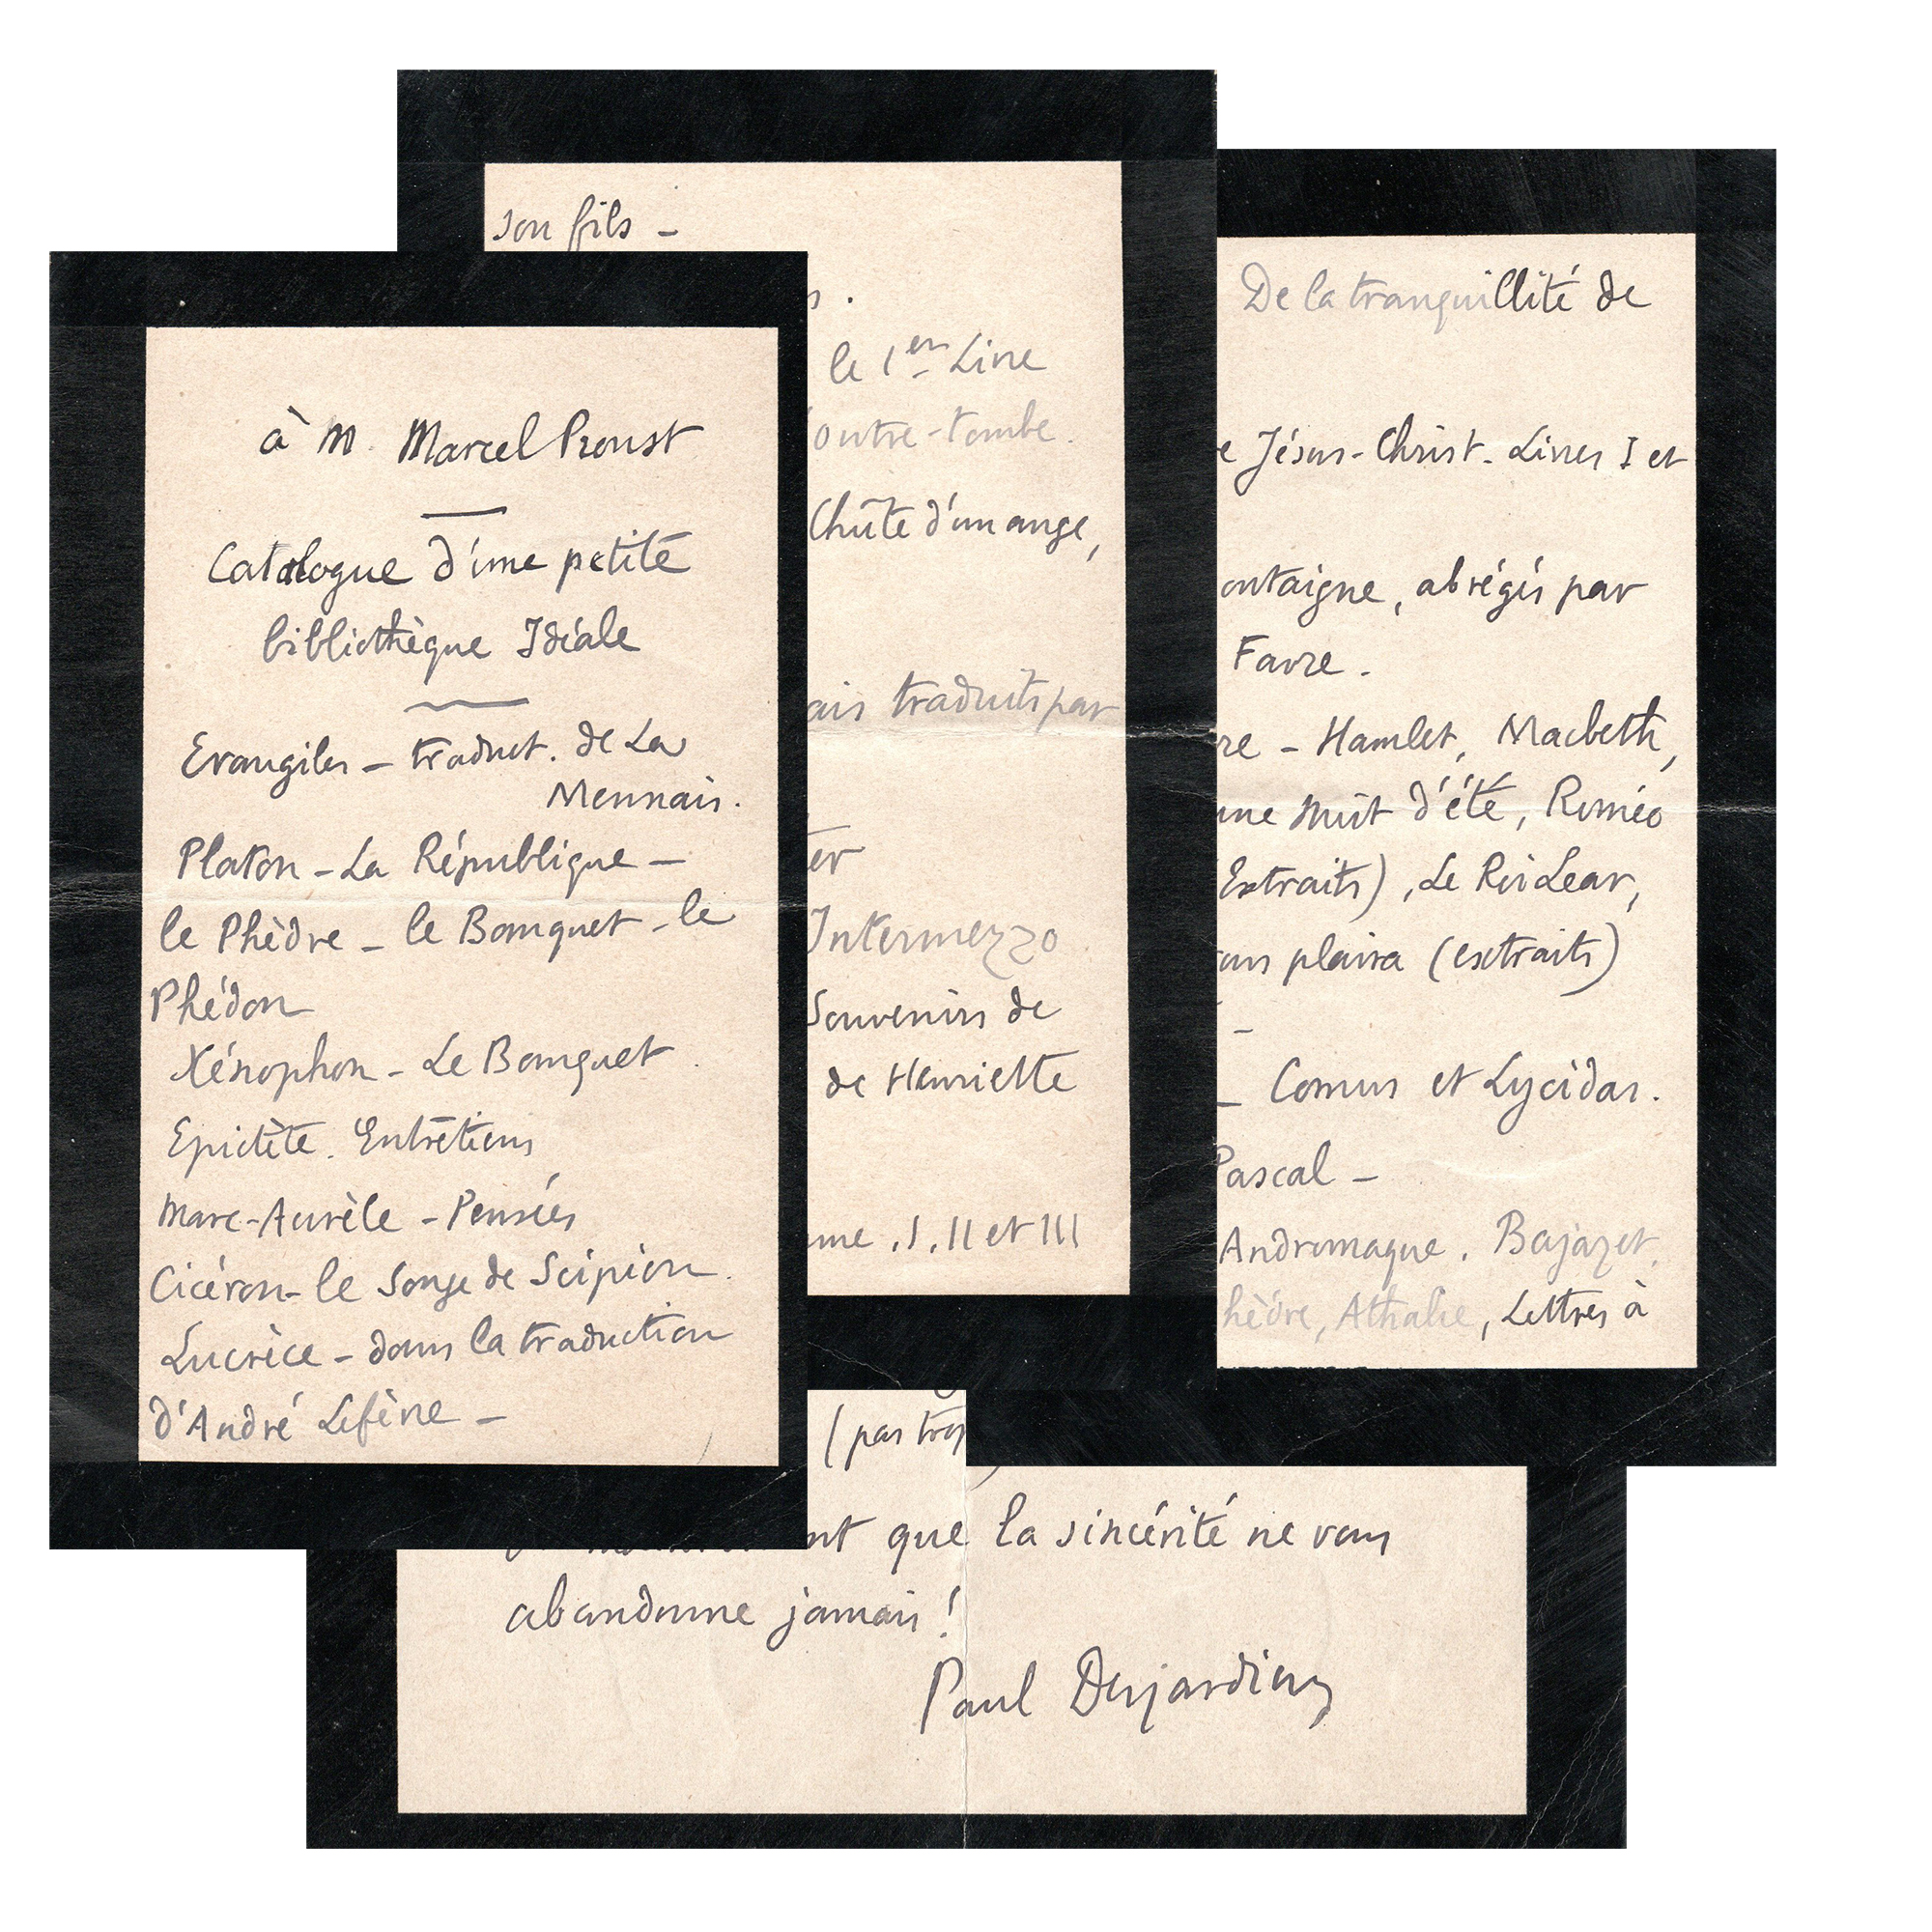 à M. Marcel Proust
Catalogue d'une petite
bibliothèque Idéale
Evangiles – traduct. de La
Mennais.
Platon – La République –
le Phèdre – le Banquet – le
Phédon
Xénophon – Le Banquet
Epictète. Entretiens
Marc-Aurèle – Pensées
Cicéron – le Songe de Scipion.
Lucrèce – dans la traduction
d'André Lefèvre –
son fils –
le 1er Livre
outre-tombe.
Chûte d'un ange,
traduits par
Intermezzo
Souvenirs de
de Henriette
I, II et III
De la tranquillité de
Jésus-Christ. Livres I et
ontaigne, abrégés par
Favre.
re – Hamlet, Macbeth,
une Nuit d'été, Roméo
(Extraits), Le Roi Lear,
plaira (extraits)
– Comus et Lycidas.
Pascal –
Andromaque. Bajazet.
hèdre, Athalie, Lettres à
(pas trop
que la sincérité ne vous
abandonne jamais !
Paul Desjardins